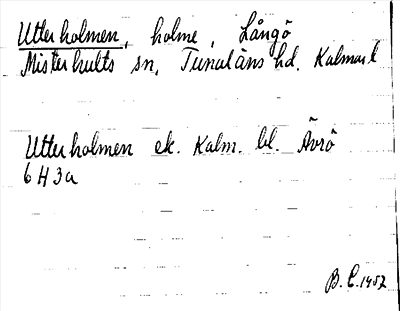 Utterholmen, holme, Långö
Misterhults sn, Tunaläns hd. Kalmar l
Utterholmen ek. Kalm. bl. Ävrö
6 H 3a
B. C. 1952